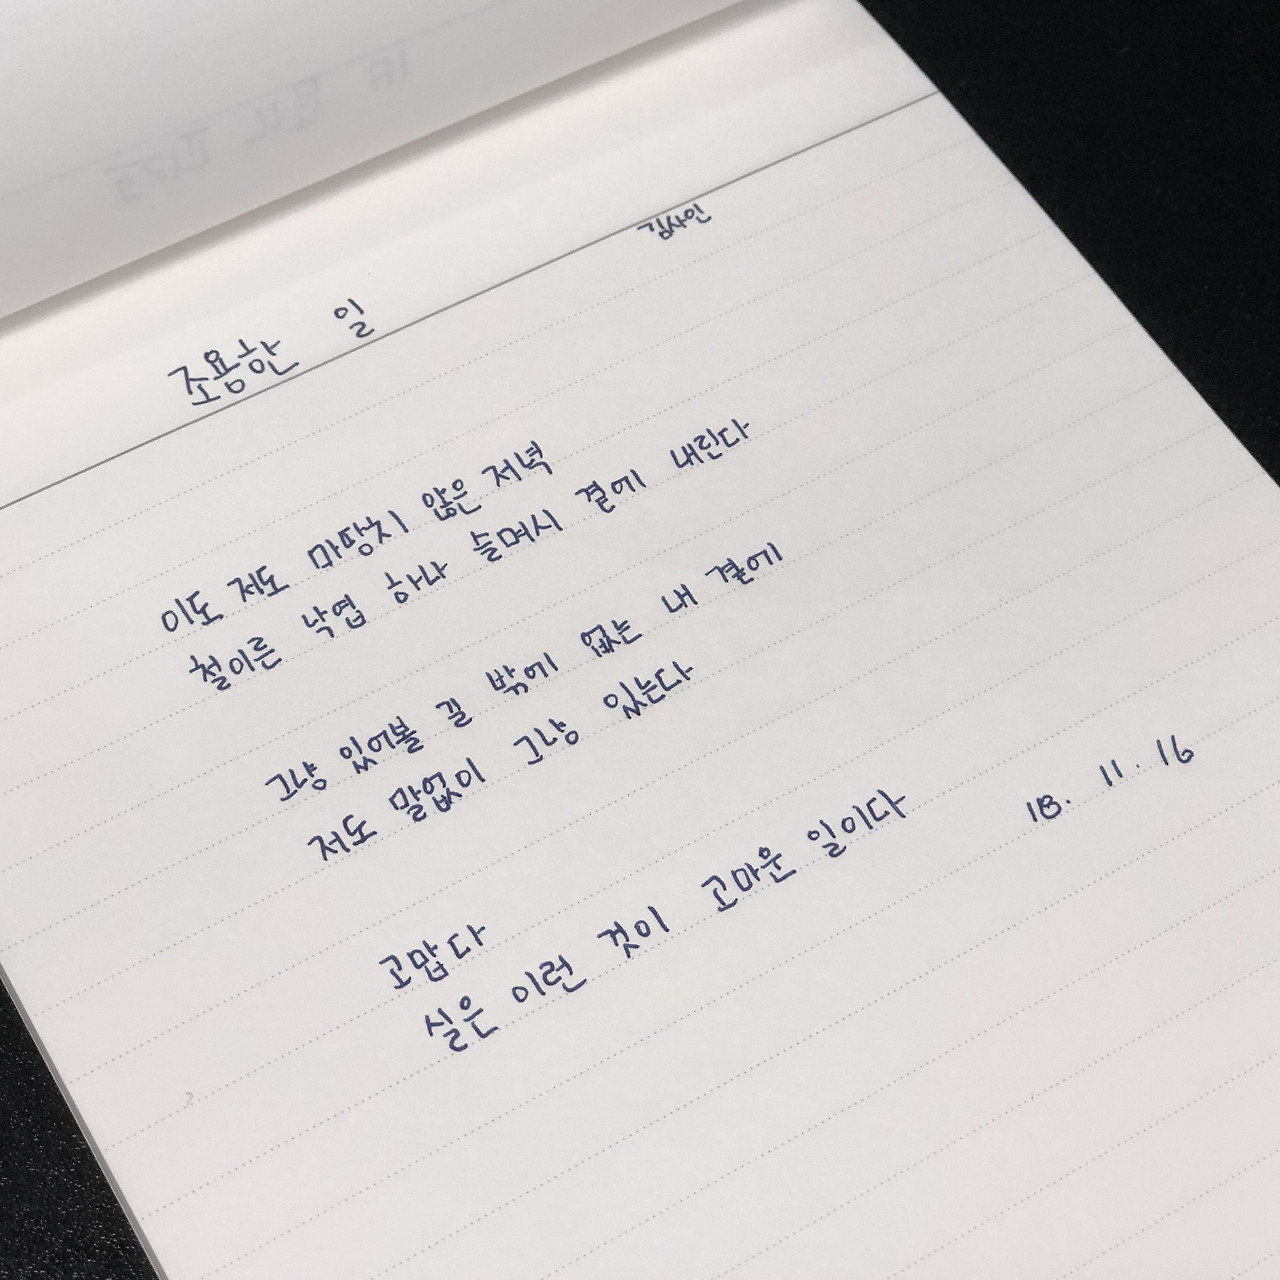 조용한 일
김사인
이도 저도 마땅치 않은 저녁
철이른 낙엽 하나 슬며시 곁에 내린다
그냥 있어볼 길 밖에 없는 내 곁에
저도 말없이 그냥 있는다
고맙다
실은 이런 것이 고마운 일이다
18. 11. 16